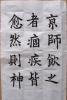 京師飲之
者痼疾皆
愈然則神